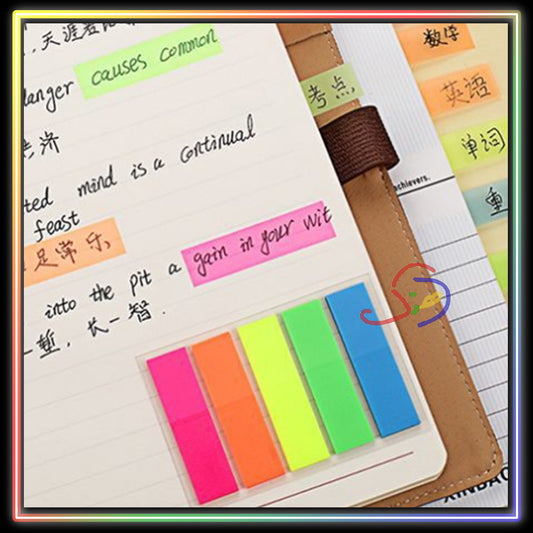 天涯
anger causes common
济
ted mind is a continual
feast
足常乐,
into the pit a gain in your wit
一堑, 长一智.
考点,
achievers.
数学
英语
单词
重
XINBAO